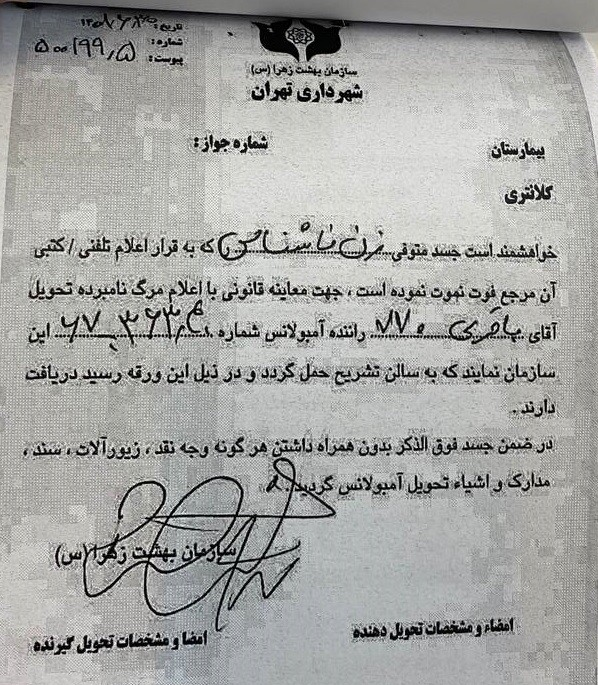 تاریخ:
شماره: ۵۰۰۱۹۹٫۵
پیوست:
سازمان بهشت زهرا (س)
شهرداری تهران
بیمارستان
شماره جواز:
کلانتری
خواهشمند است جسد متوفی زن ناشناس را که به قرار اعلام تلفنی / کتبی
آن مرجع فوت نموت نموده است ، جهت معاینه قانونی با اعلام مرگ نامبرده تحویل
آقای باقری ۸۷۰ راننده آمبولانس شماره این
سازمان نمایند که به سالن تشریح حمل گردد و در ذیل این ورقه رسید دریافت
دارند .
در ضمن جسد فوق الذکر بدون همراه داشتن هر گونه وجه نقد ، زیورآلات ، سند ،
مدارک و اشیاء تحویل آمبولانس گردید .
سازمان بهشت زهرا (س)
امضاء و مشخصات تحویل دهنده
امضا و مشخصات تحویل گیرنده